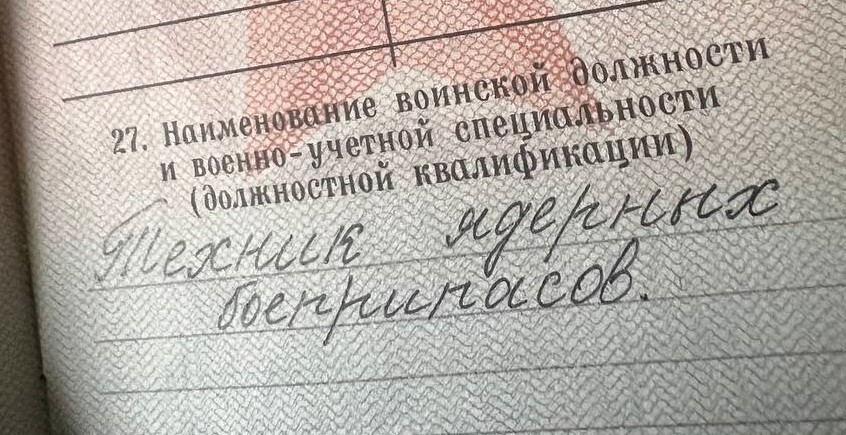 27. Наименование воинской должности
и военно-учетной специальности
(должностной квалификации)
Техник ядерных
боеприпасов.